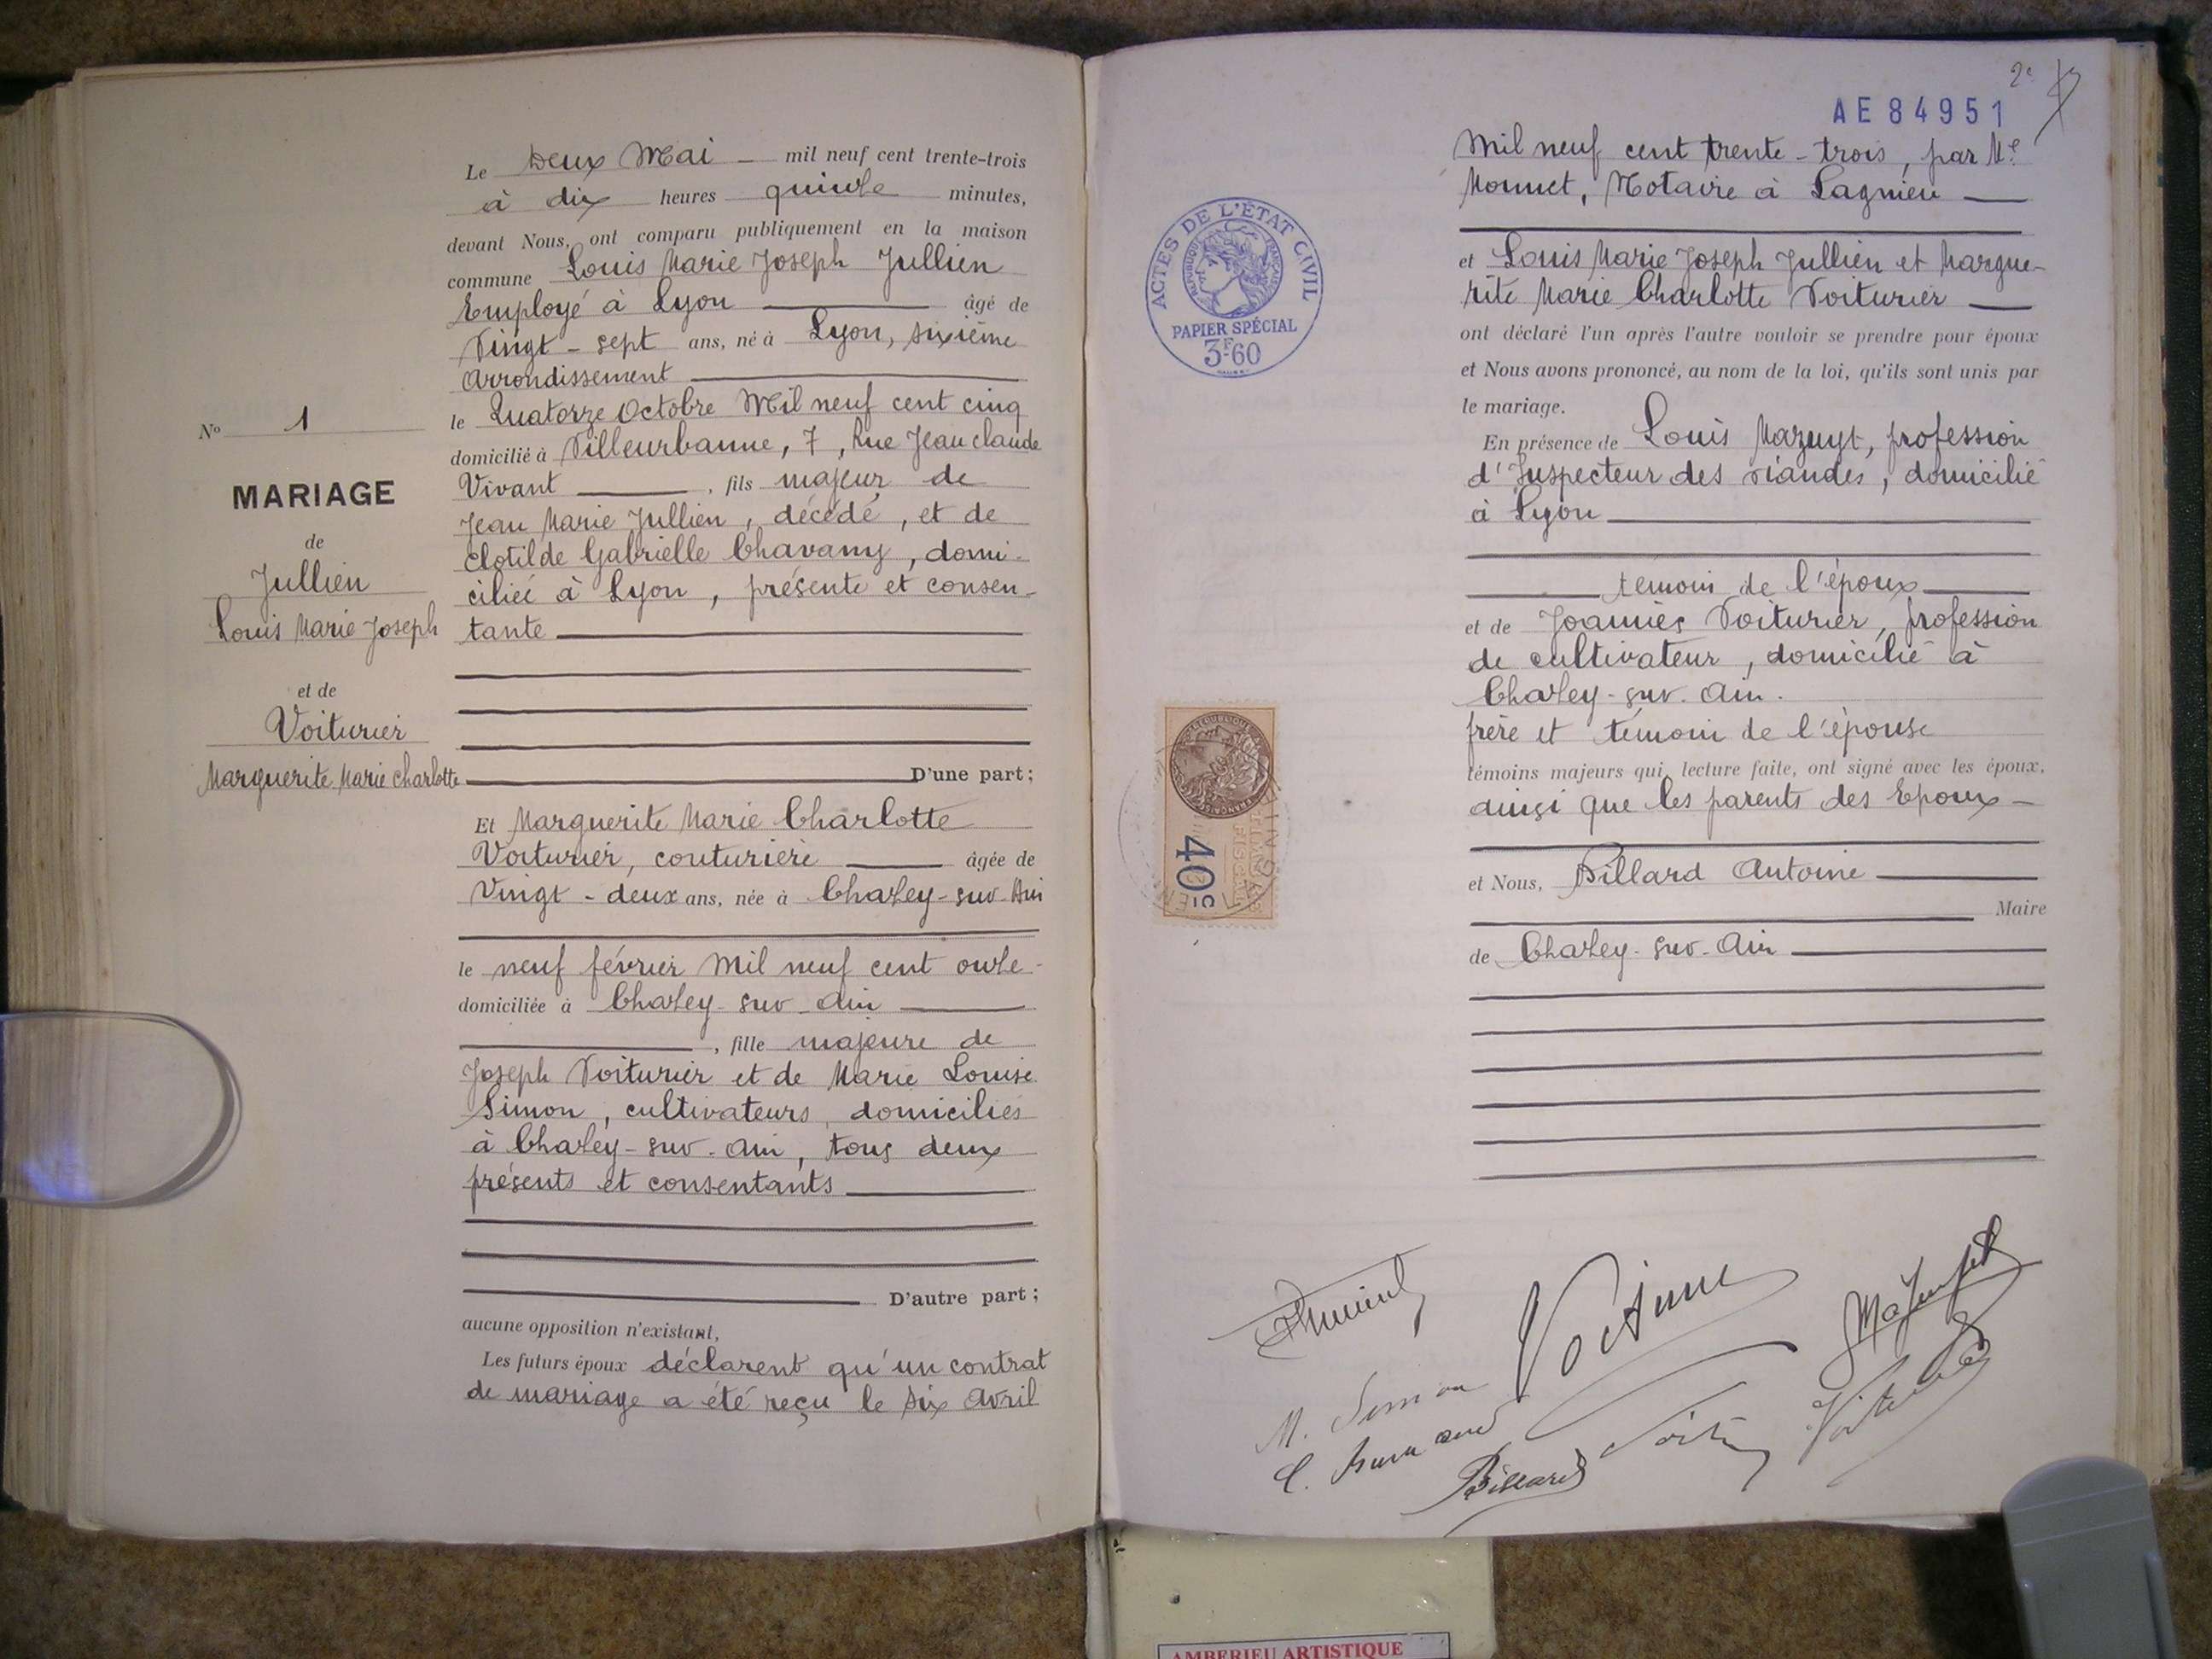 Le Deux Mai — mil neuf cent trente-trois
à dix heures quinze minutes,
devant Nous, ont comparu publiquement en la maison
commune Louis Marie Joseph Jullien
Employé à Lyon — âgé de
Vingt-sept ans, né à Lyon, sixième
Arrondissement
le Quatorze Octobre Mil neuf cent cinq
domicilié à Villeurbanne, 7, Rue Jean Claude
Vivant —, fils majeur de
Jean Marie Jullien, décédé, et de
Clotilde Gabrielle Chavany, domi-
ciliée à Lyon, présente et consen-
tante
D'une part;
Et Marguerite Marie Charlotte
Voiturier, couturière — âgée de
Vingt-deux ans, née à Chazey-sur-Ain
le neuf février Mil neuf cent onze
domiciliée à Chazey-sur-Ain
, fille majeure de
Joseph Voiturier et de Marie Louise
Simon, cultivateurs, domiciliés
à Chazey-sur-Ain, tous deux
présents et consentants
D'autre part;
aucune opposition n'existant,
Les futurs époux déclarent qu'un contrat
de mariage a été reçu le six Avril
No 1
MARIAGE
de
Jullien
Louis Marie Joseph
et de
Voiturier
Marguerite Marie Charlotte
2e
AE84951
Mil neuf cent trente-trois, par Me
Monnet, Notaire à Lagnieu —
et Louis Marie Joseph Jullien et Margue-
rite Marie Charlotte Voiturier —
ont déclaré l'un après l'autre vouloir se prendre pour époux
et Nous avons prononcé, au nom de la loi, qu'ils sont unis par
le mariage.
En présence de Louis Mazuyt, profession
d'Inspecteur des viandes, domicilié
à Lyon
témoin de l'époux
et de Joannès Voiturier, profession
de cultivateur, domicilié à
Chazey-sur-Ain.
frère et témoin de l'épouse
témoins majeurs qui, lecture faite, ont signé avec les époux,
ainsi que les parents des Epoux —
et Nous, Billard Antoine
Maire
de Chazey-sur-Ain
ACTES DE L'ÉTAT CIVIL
PAPIER SPÉCIAL
3F60
40c
M. Simon
Billard
AMBERIEU ARTISTIQUE